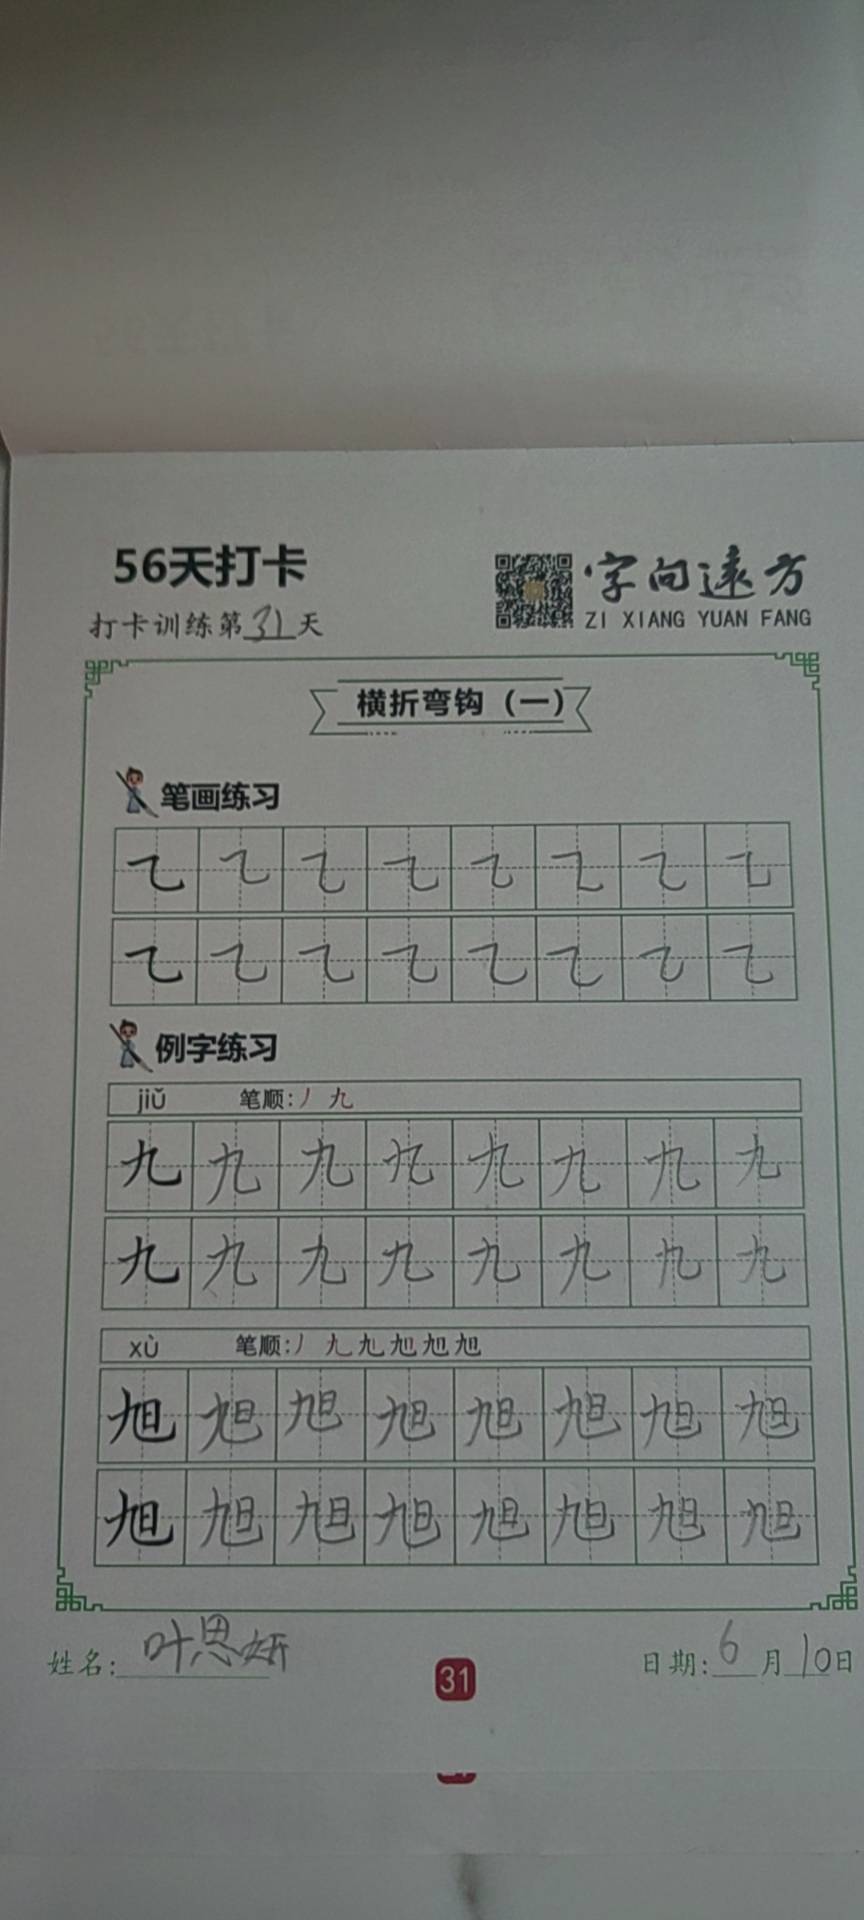 56天打卡
打卡训练第31天
字向远方
ZI XIANG YUAN FANG
横折弯钩（一）
笔画练习
㇈ ㇈ ㇈ ㇈ ㇈ ㇈ ㇈ ㇈
㇈ ㇈ ㇈ ㇈ ㇈ ㇈ ㇈ ㇈
例字练习
jiǔ 笔顺:丿 九
九 九 九 九 九 九 九 九
九 九 九 九 九 九 九 九
xù 笔顺:丿 九 九 旭 旭 旭
旭 旭 旭 旭 旭 旭 旭 旭
旭 旭 旭 旭 旭 旭 旭 旭
姓名:叶思妍
31
日期:6月10日